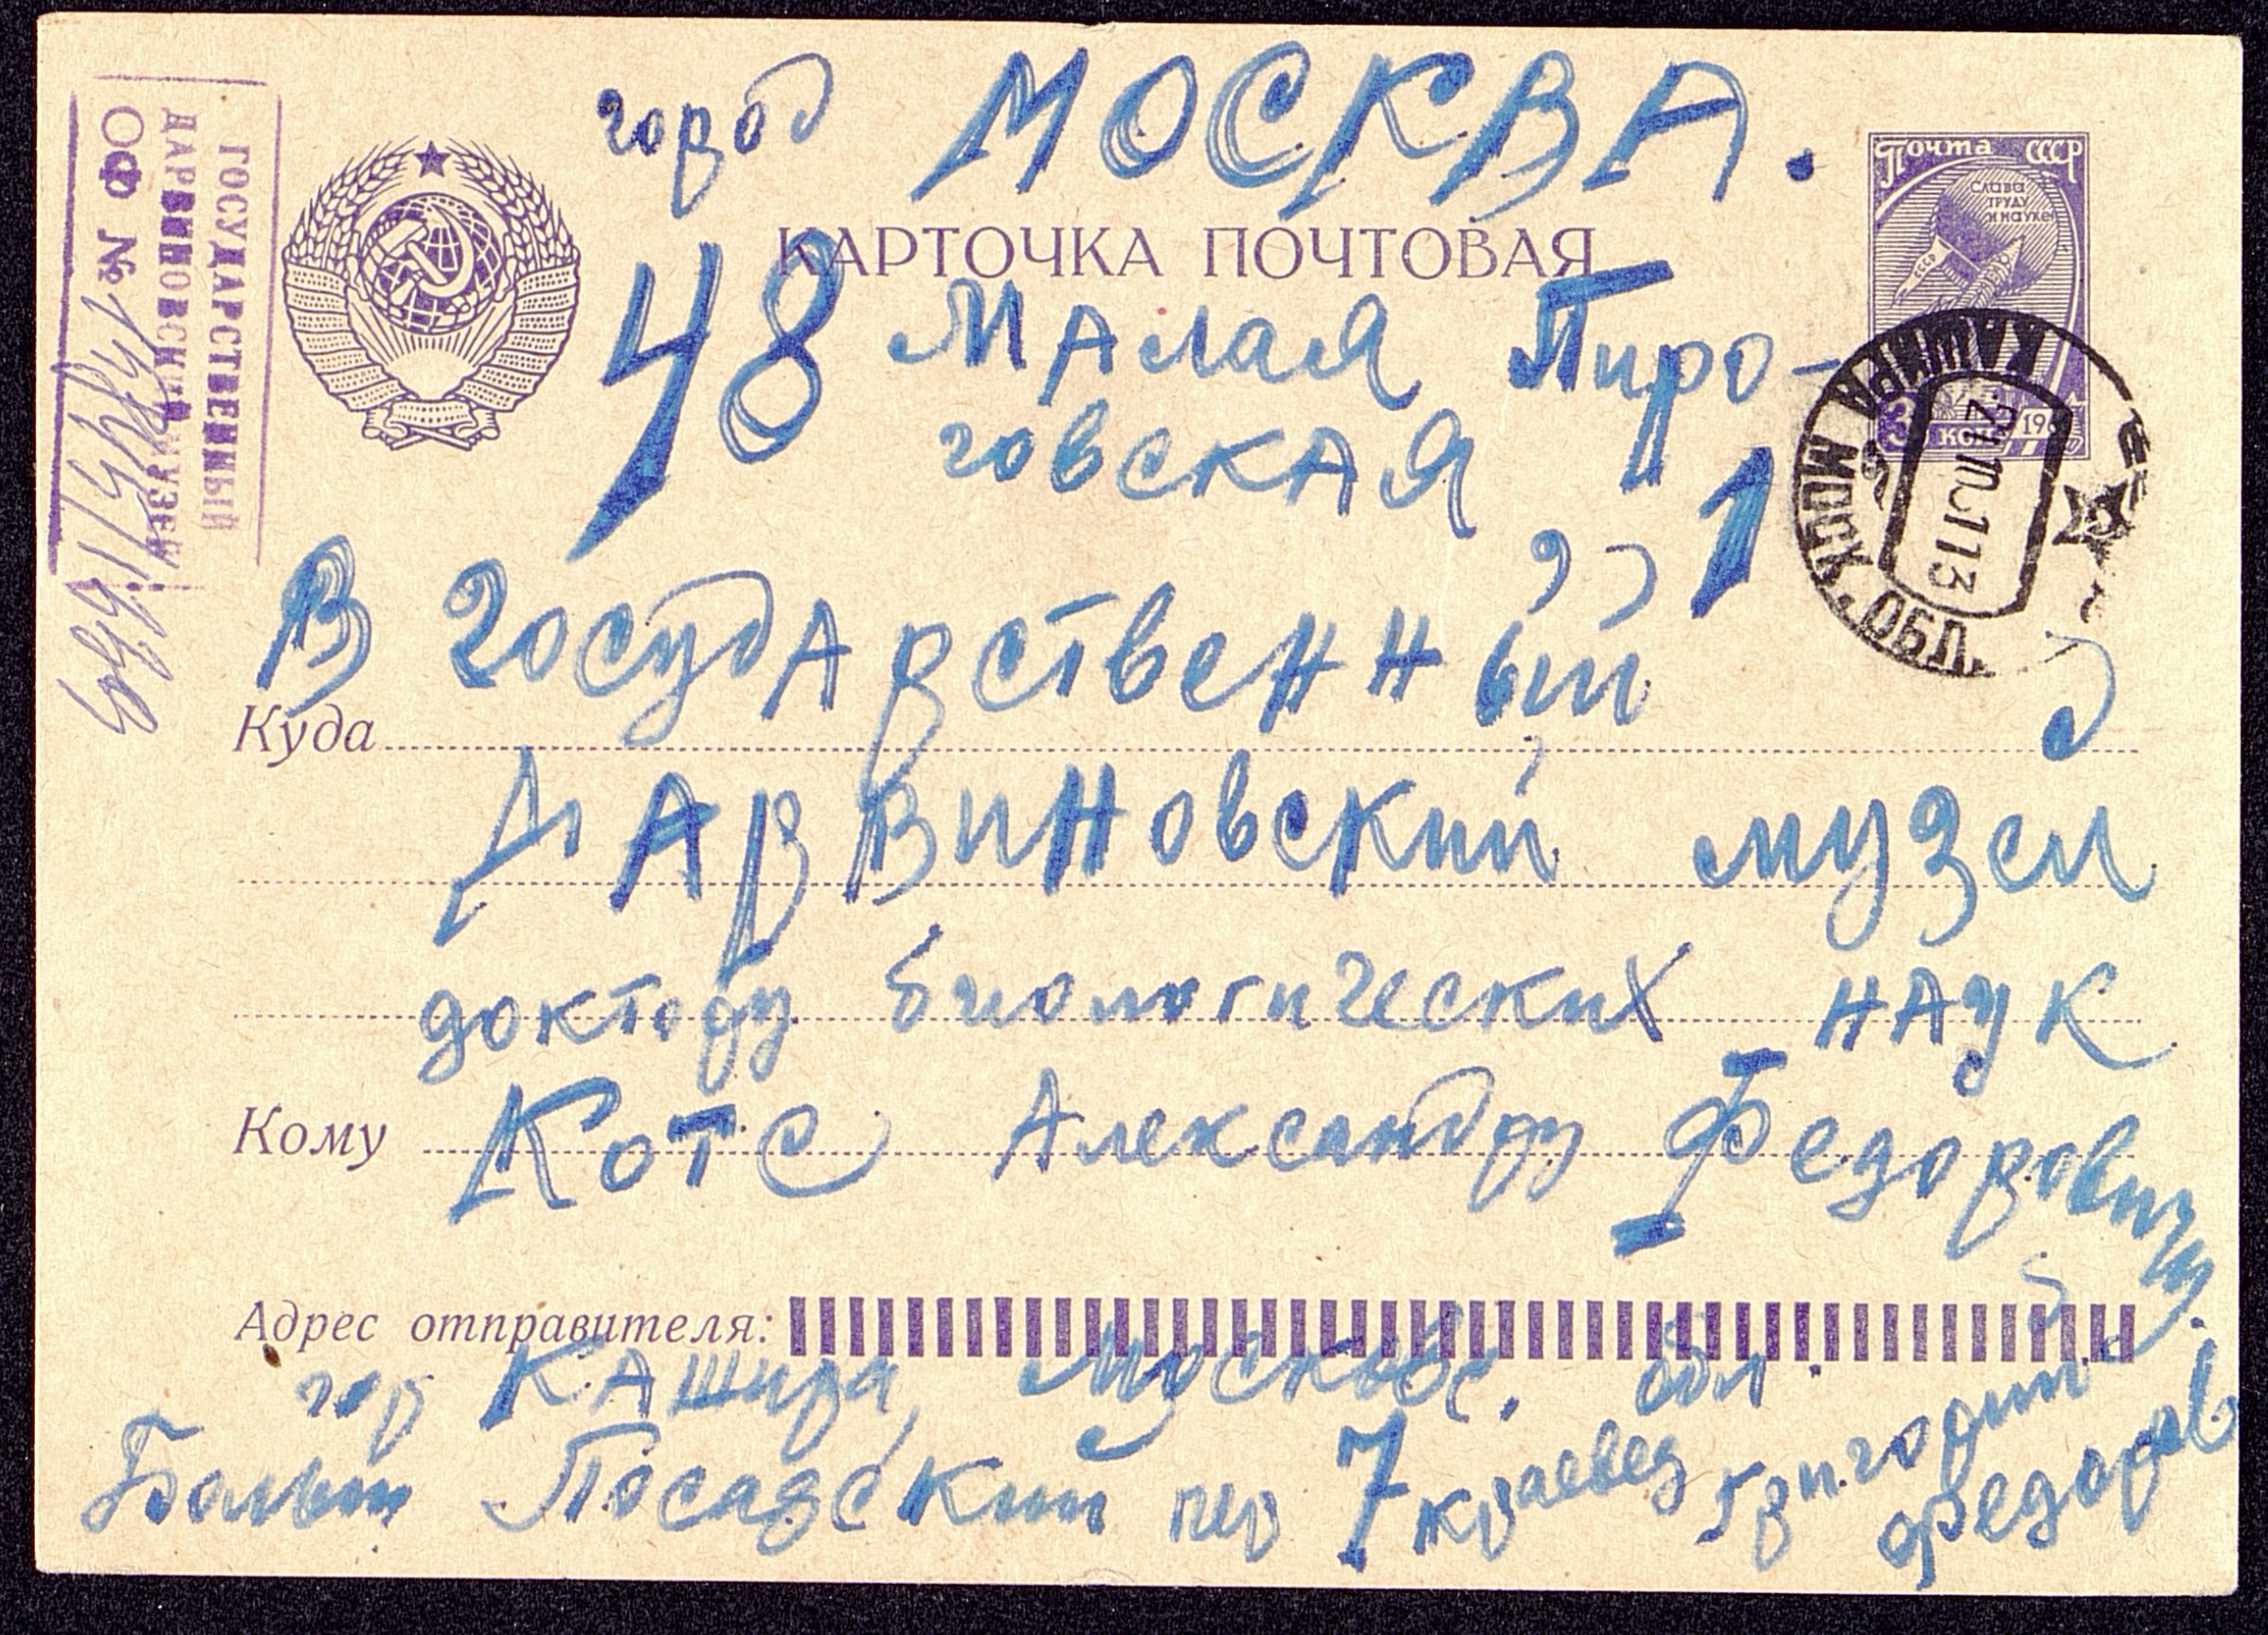 город МОСКВА.
КАРТОЧКА ПОЧТОВАЯ
48 Малая Пиро-
говская, 1
В Государственный
Куда
Дарвиновский музей
доктору биологических наук
Кому
Котс Александру Федоровичу
Адрес отправителя:
гор Кашира, Московс. обл.
Больш Посадский пер 7 краевед Григорий
Федоров
ГОСУДАРСТВЕННЫЙ
ДАРВИНОВСКИЙ МУЗЕЙ
ОФ №
Почта СССР
Слава
труду
и науке
СССР
3 коп
КАШИРА МОСК. ОБЛ.